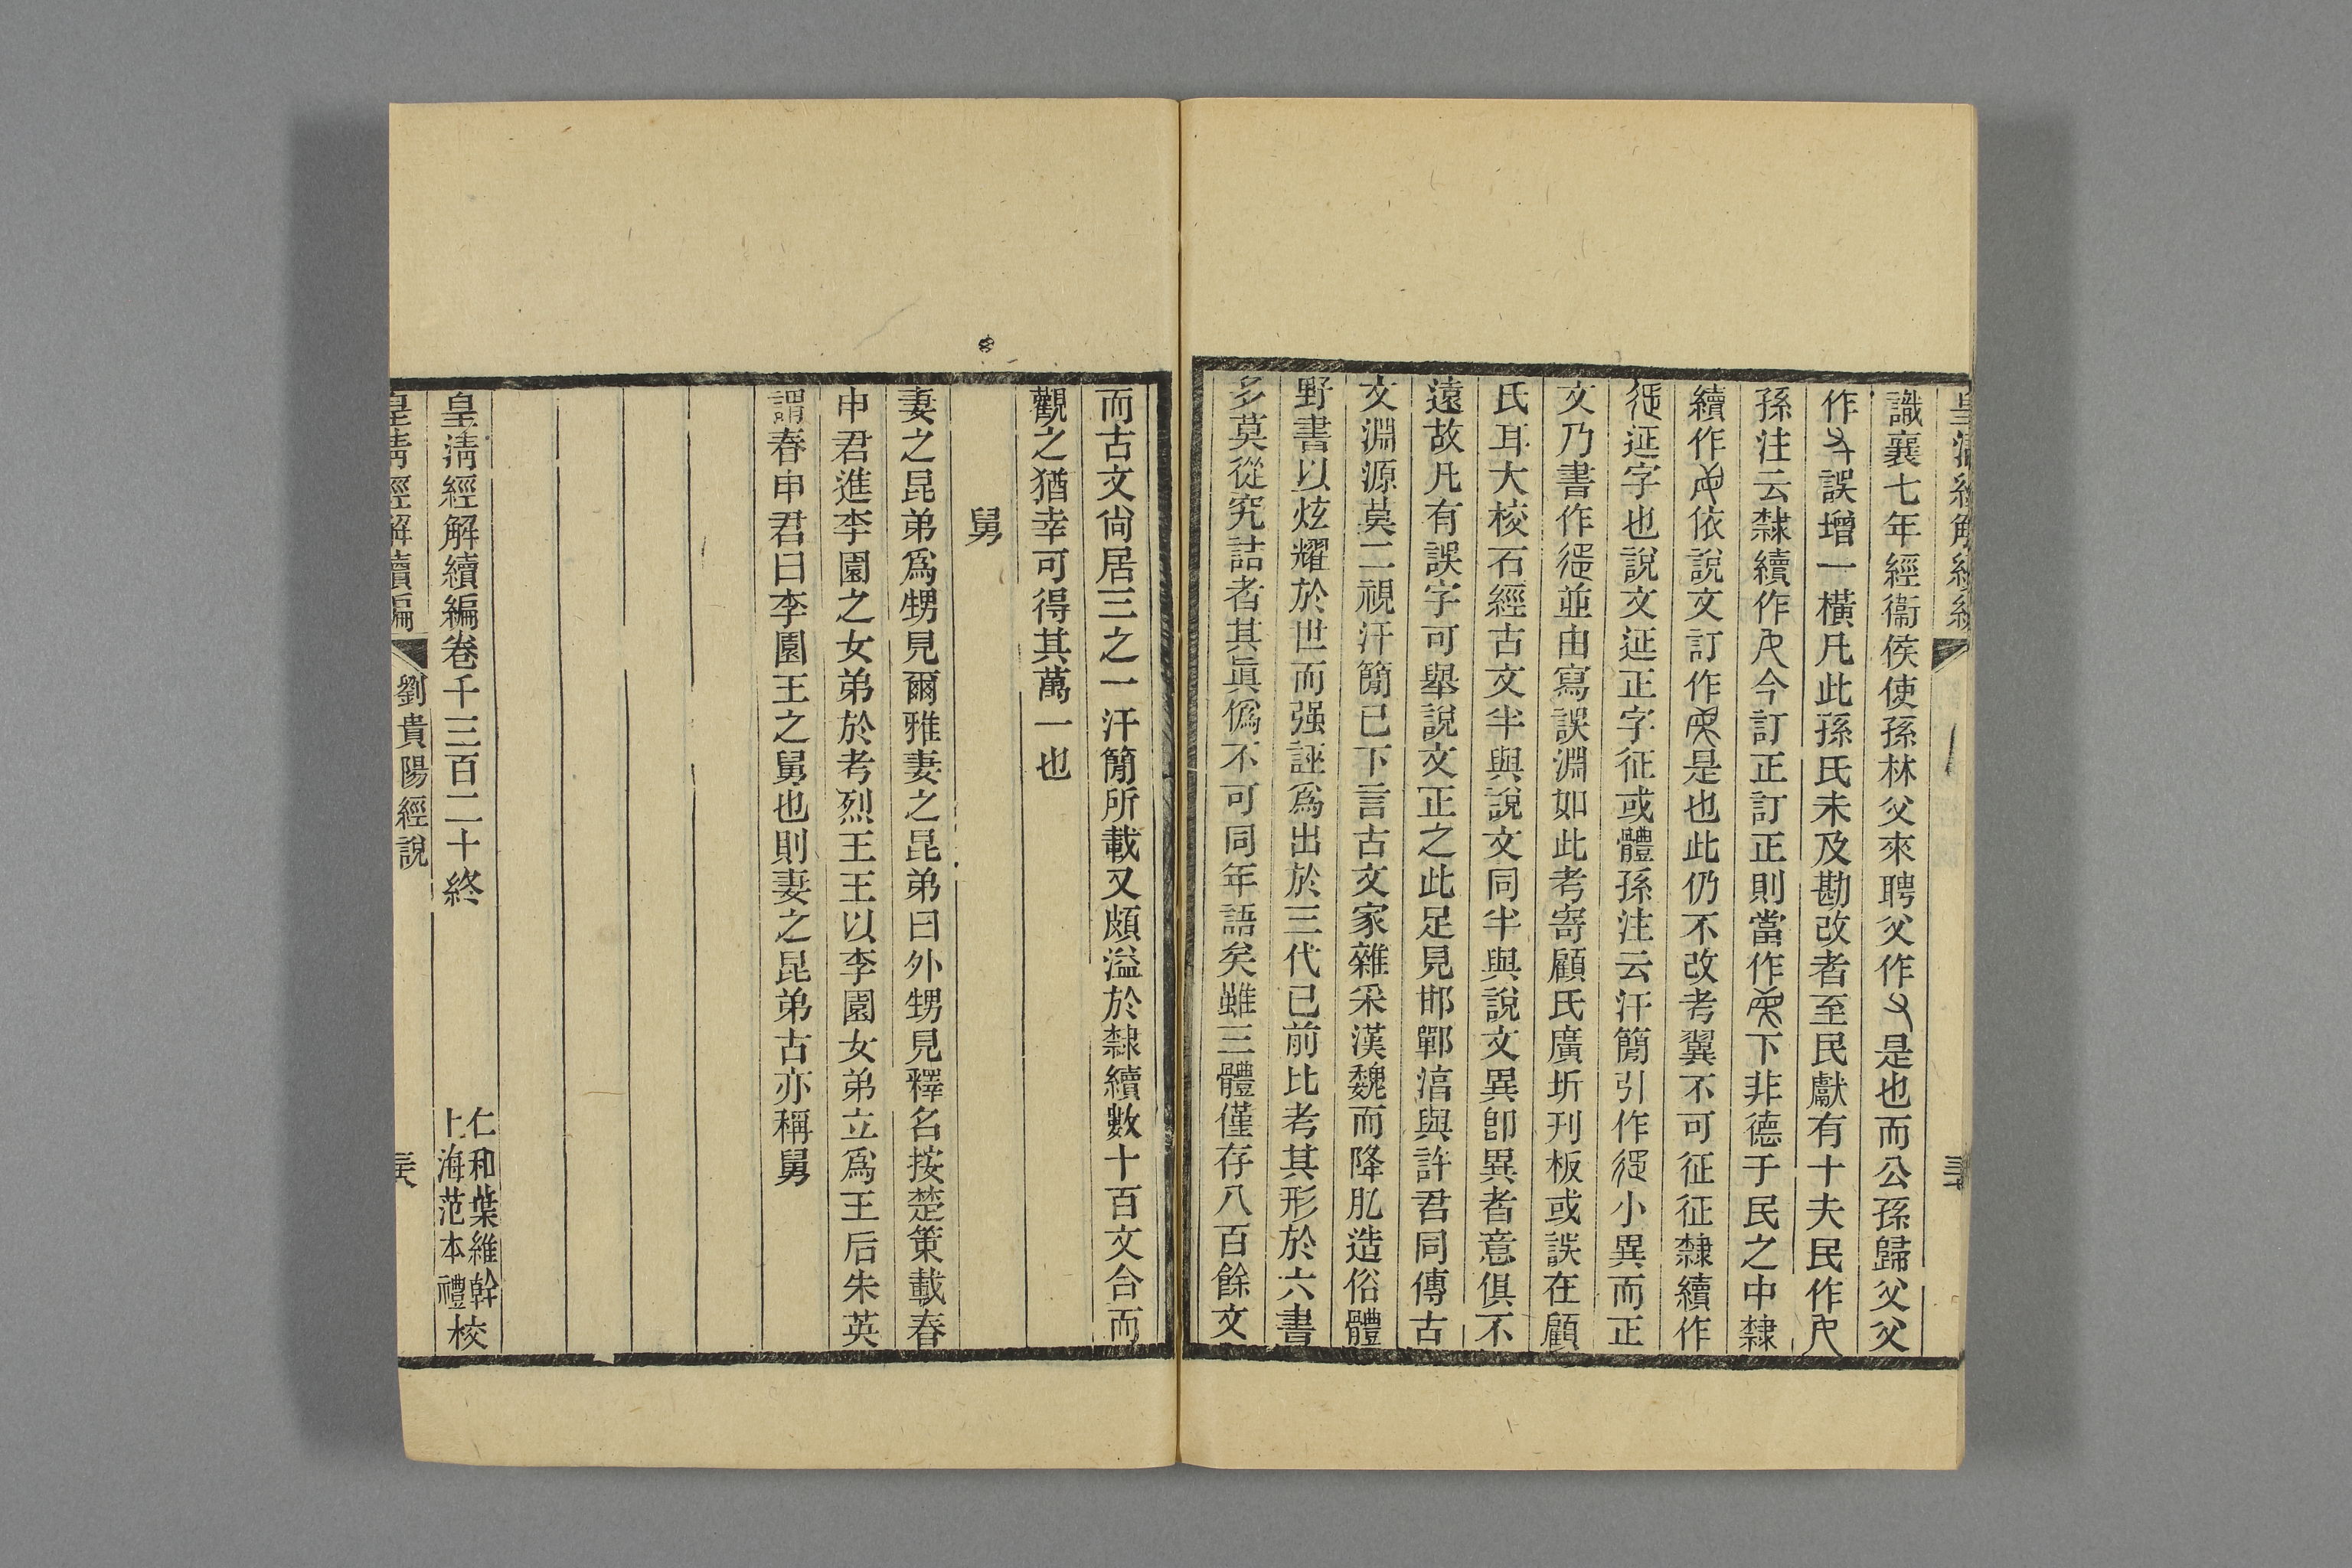 識襄七年經衞侯使孫林父來聘父作是也而公孫歸父父
作誤增一橫凡此孫氏未及勘改者至民獻有十夫民作
孫注云隸續作今訂正訂正則當作下非德于民之中隸
續作依說文訂作是也此仍不改考翼不可征征隸續作
延字也說文延正字征或體孫注云汗簡引作小異而正
文乃書作並由寫誤淵如此考寄顧氏廣圻刋板或誤在顧
氏耳大校石經古文半與說文同半與說文異卽異者意俱不
遠故凡有誤字可舉說文正之此足見邯鄲淳與許君同傳古
文淵源莫二視汗簡已下言古文家雜采漢魏而降肊造俗體
野書以炫耀於世而强誣爲出於三代已前比考其形於六書
多莫從究詰者其眞僞不可同年語矣雖三體僅存八百餘文
而古文尙居三之一汗簡所載又頗溢於隸續數十百文合而
觀之猶幸可得其萬一也
舅
妻之昆弟爲甥見爾雅妻之昆弟曰外甥見釋名按楚策載春
申君進李園之女弟於考烈王王以李園女弟立爲王后朱英
謂春申君曰李園王之舅也則妻之昆弟古亦稱舅
皇淸經解續編卷千三百二十終
仁和葉維幹
上海范本禮
校
皇淸經解續編
劉貴陽經說